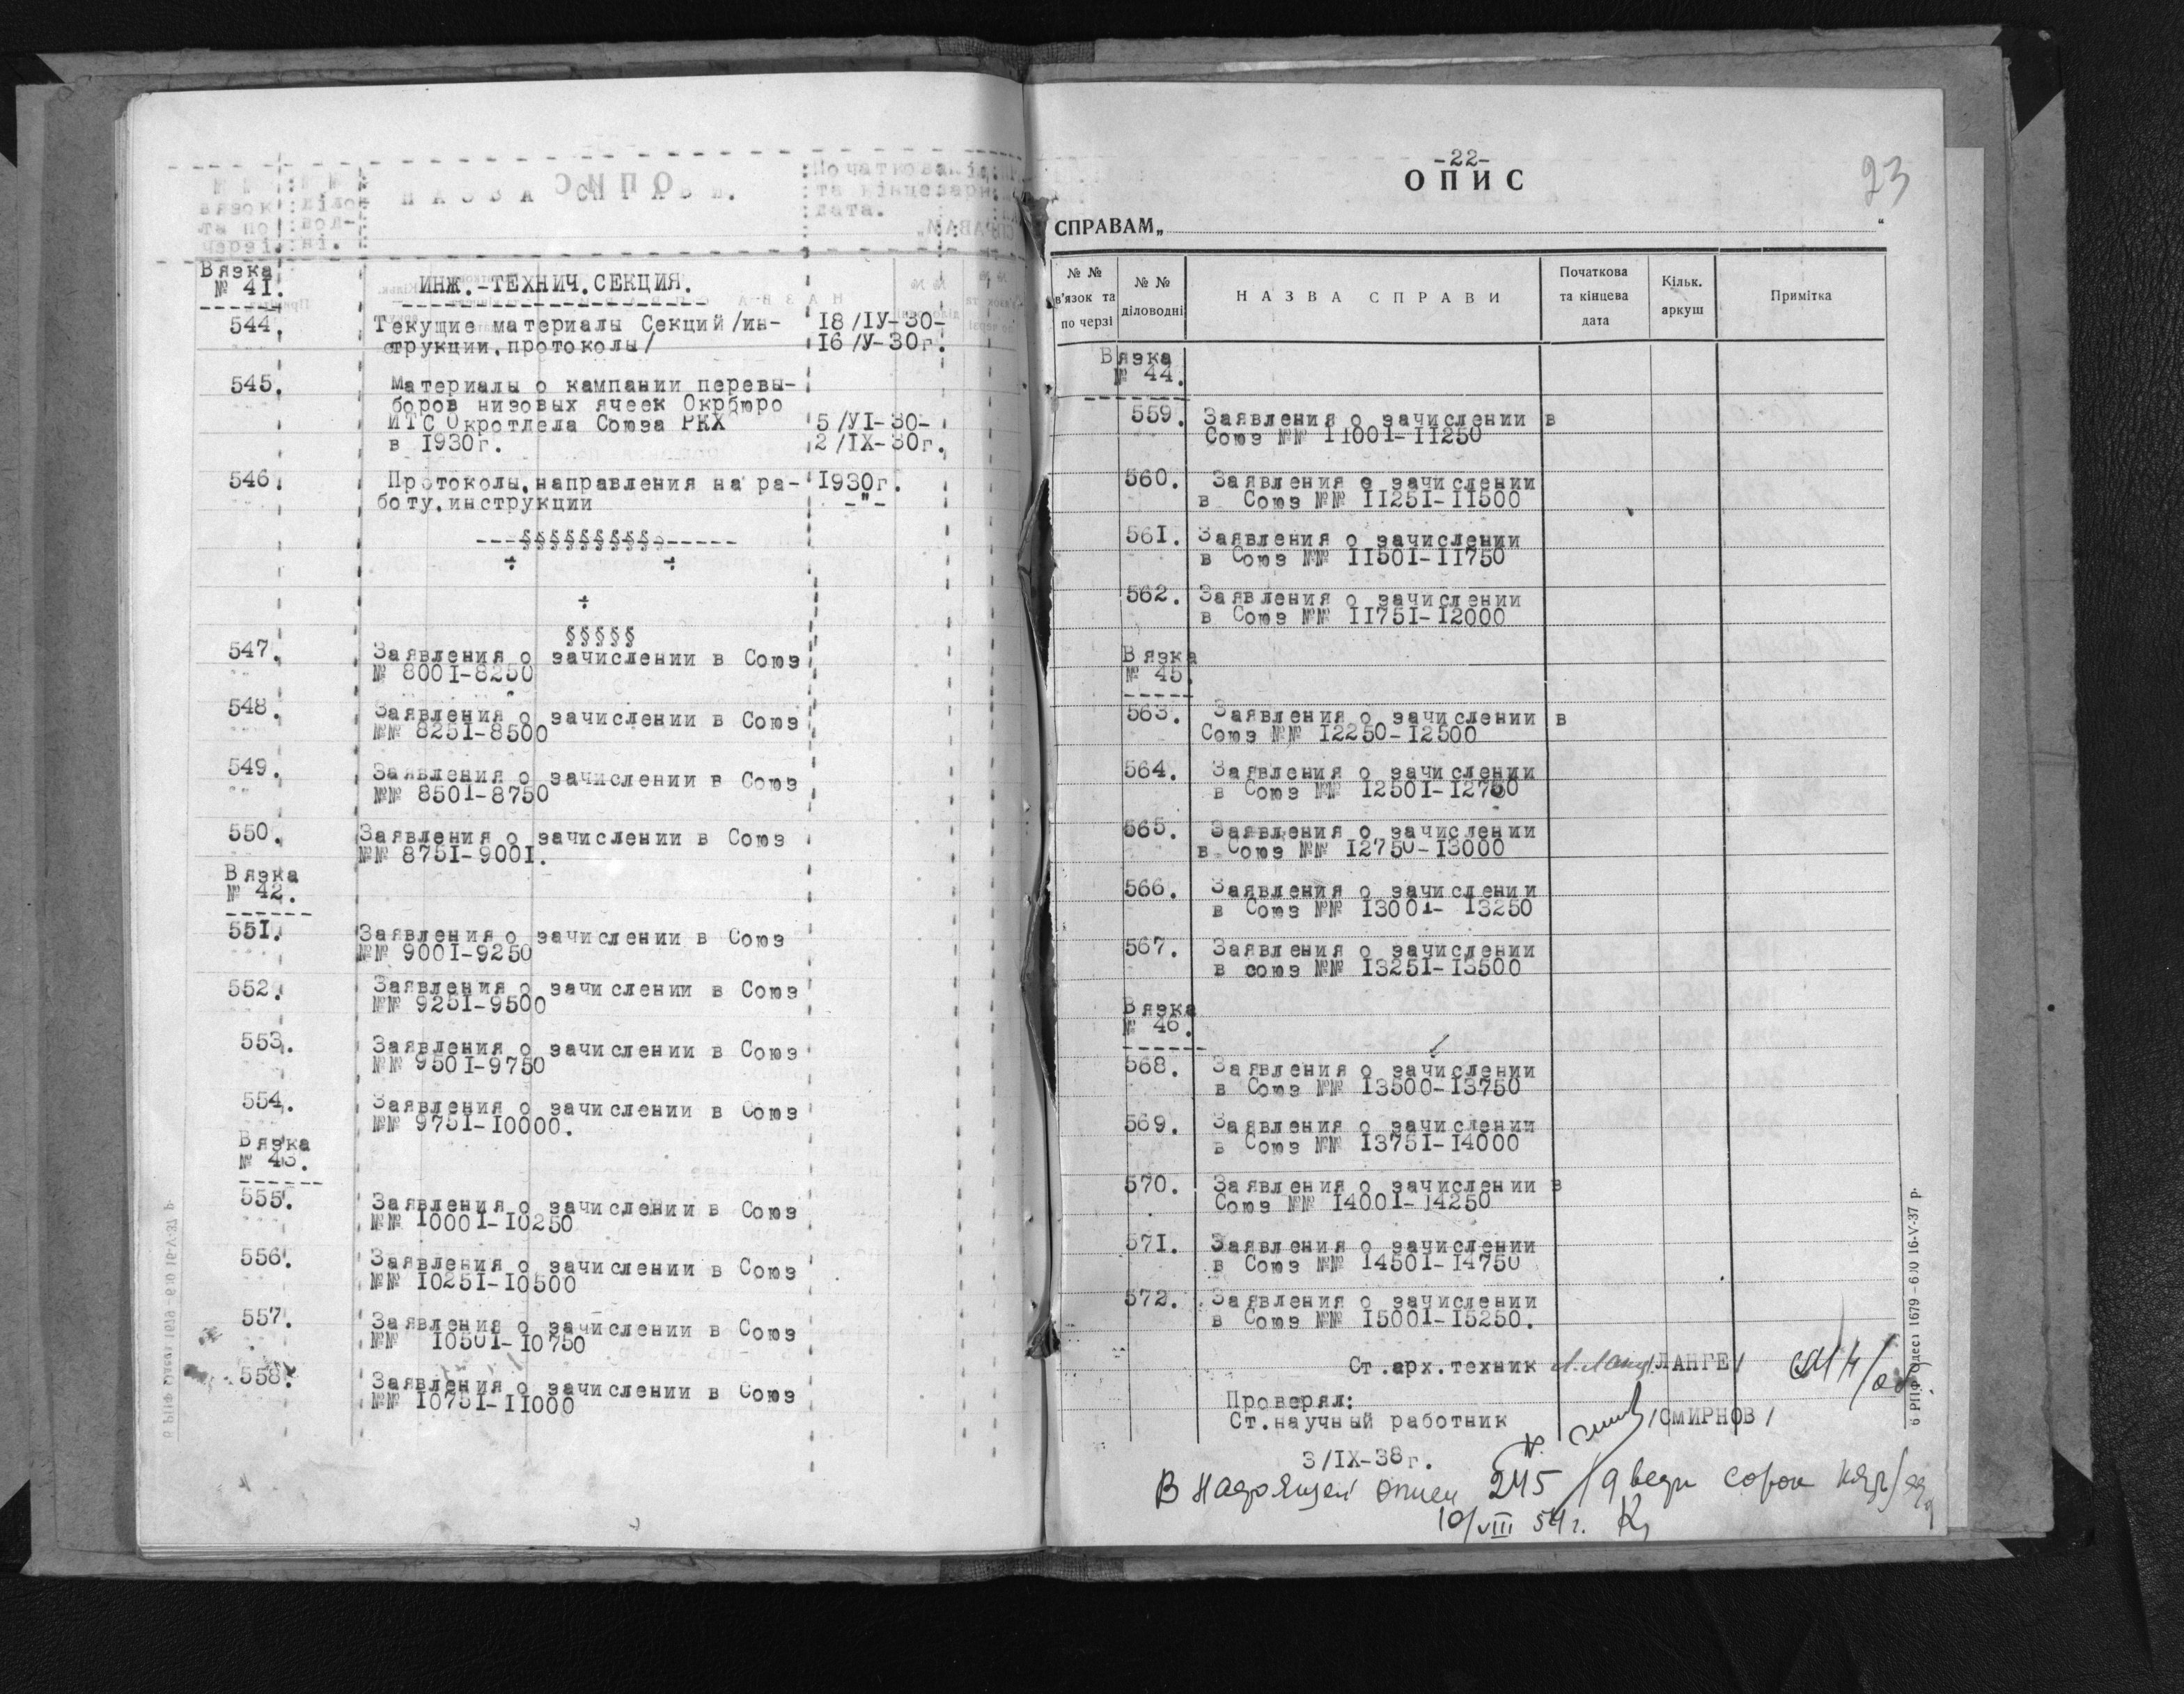 № № вязок та по черзі.
№ № діло- вод- ні.
НАЗВА СПРАВИ.
Початкова та кінцева дата.
Вязка
№ 41.
ИНЖ.-ТЕХНИЧ.СЕКЦИЯ.
544. Текущие материалы Секций/ин- 18/IУ-30-
струкции,протоколы/ 16/У-30г.
545. Материалы о кампании перевы-
боров низовых ячеек Окрбюро
ИТС Окротдела Союза РКХ 5/УI-30-
в 1930г. 2/IХ-30г.
546. Протоколы,направления на ра- 1930г.
боту,инструкции -"-
---§§§§§§§§§§-----
÷ ÷
÷
§§§§§
547. Заявления о зачислении в Союз
№ 8001-8250
548. Заявления о зачислении в Союз
№№ 8251-8500
549. Заявления о зачислении в Союз
№№ 8501-8750
550. Заявления о зачислении в Союз
№№ 8751-9001.
Вязка
№ 42.
551. Заявления о зачислении в Союз
№№ 9001-9250
552. Заявления о зачислении в Союз
№№ 9251-9500
553. Заявления о зачислении в Союз
№№ 9501-9750
554. Заявления о зачислении в Союз
№№ 9751-10000.
Вязка
№ 43.
555. Заявления о зачислении в Союз
№№ 10001-10250
556. Заявления о зачислении в Союз
№№ 10251-10500
557. Заявления о зачислении в Союз
№№ 10501-10750
558. Заявления о зачислении в Союз
№№ 10751-11000
-22-
23
ОПИС
СПРАВАМ„ “
№ № в'язок та по черзі
№ № діловодні
НАЗВА СПРАВИ
Початкова та кінцева дата
Кільк. аркуш
Примітка
Вязка
№ 44.
559. Заявления о зачислении в
Союз №№ 11001-11250
560. Заявления о зачислении
в Союз №№ 11251-11500
561. Заявления о зачислении
в Союз №№ 11501-11750
562. Заявления о зачислении
в Союз №№ 11751-12000
Вязка
№ 45.
563. Заявления о зачислении в
Союз №№ 12250-12500
564. Заявления о зачислении
в Союз №№ 12501-12750
565. Заявления о зачислении
в Союз №№ 12750-13000
566. Заявления о зачислении
в Союз №№ 13001- 13250
567. Заявления о зачислении
в союз №№ 13251-13500
Вязка
№ 46.
568. Заявления о зачислении
в Союз №№ 13500-13750
569. Заявления о зачислении
в Союз №№ 13751-14000
570. Заявления о зачислении в
Союз №№ 14001-14250
571. Заявления о зачислении
в Союз №№ 14501-14750
572. Заявления о зачислении
в Союз №№ 15001-15250.
Ст.арх.техник /ЛАНГЕ/
Проверял:
Ст.научный работник /СМИРНОВ/
3/IХ-38г.
В настоящей описи 245 /двести сорок пять/
10/VIII 54 г.
6 РПФ Одеса 1679 – 600 16-V-37 р.